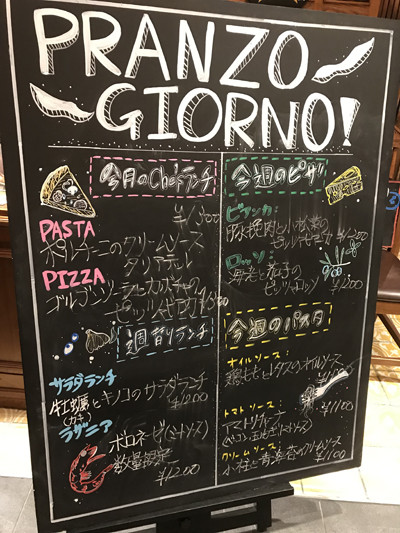 PRANZO
GIORNO!
今月のChefランチ
PASTA
ポルチーニのクリームソース
タリアテレ
PIZZA
週替りランチ
サラダランチ
牡蠣とキノコのサラダランチ
(カキ)
¥1200
ラザニア
ボロネーゼ(ミートソース)
数量限定
¥1200
今週のピザ
ビアンカ:
豚挽肉と小松菜の
¥1200
ロッソ:
海老と茄子の
ピッツァロッソ
¥1200
今週のパスタ
オイルソース:
鶏ももとレタスのオイルソース
¥1100
トマトソース:
アマトリチャーナ
(ベーコン玉ねぎトマトソース)
¥1100
クリームソース:
小柱と青海苔のクリームソース
¥1100